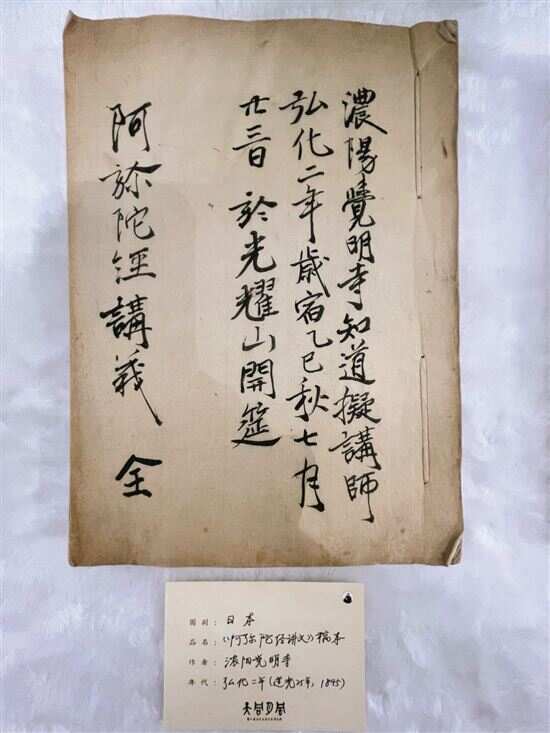 濃陽覺明寺知道擬講師
弘化二年歲宿乙巳秋七月
廿三日 於光耀山開筵
阿弥陀經講義 全
国别：日本
品名：《阿弥陀经讲义》稿本
作者：浓阳觉明寺
年代：弘化二年（道光25年，1845）